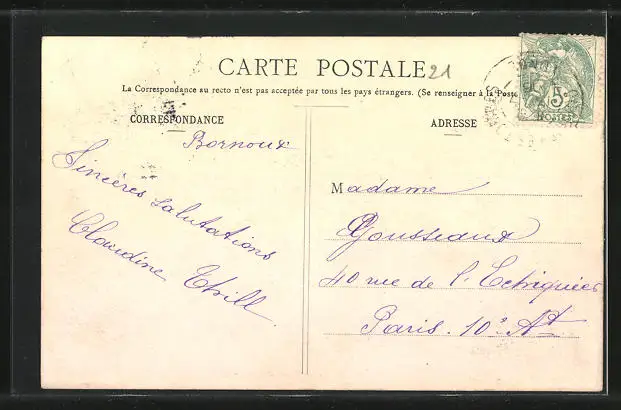 CARTE POSTALE
21
La Correspondance au recto n'est pas acceptée par tous les pays étrangers. (Se renseigner à la Poste
CORRESPONDANCE
Bornoux
Sincères salutations
Claudine Thill
ADRESSE
Madame
Gousseaux
40 rue de l'Echiquier
Paris. 10e Art
5
POSTES